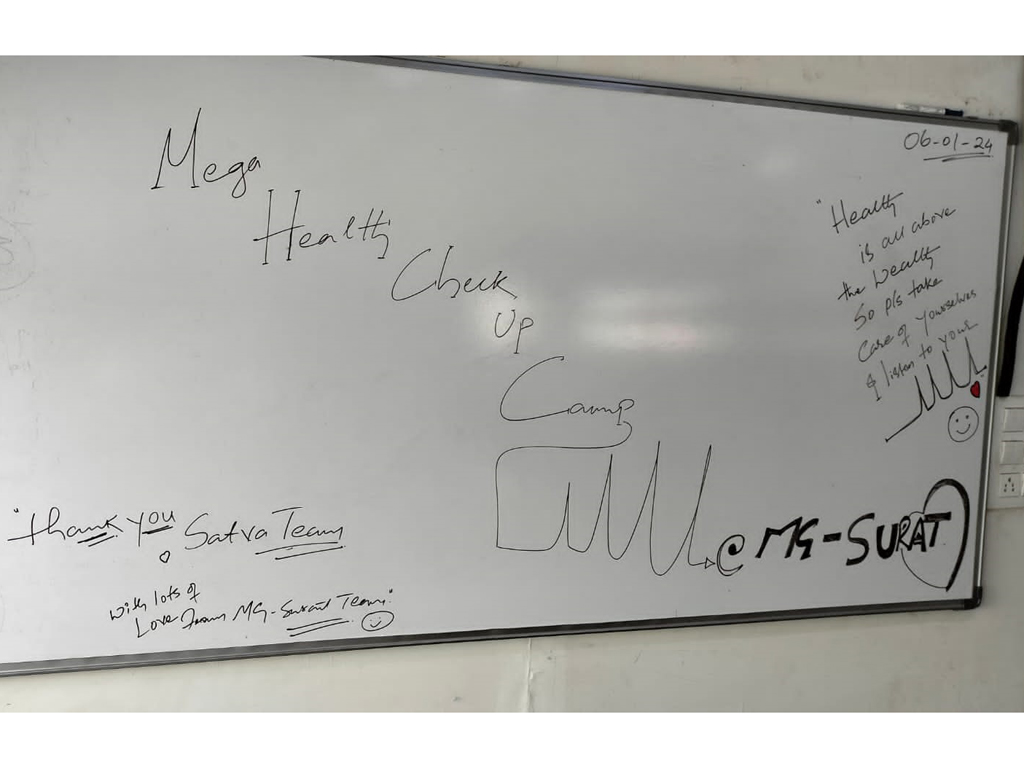 Mega
Health
Check
Up
Camp
@ MG-SURAT
06-01-24
"Health
is all above
the wealth
So pls take
care of yourselves
& listen to your
"thank you Satva Team
with lots of
Love From MG-Surat Team"